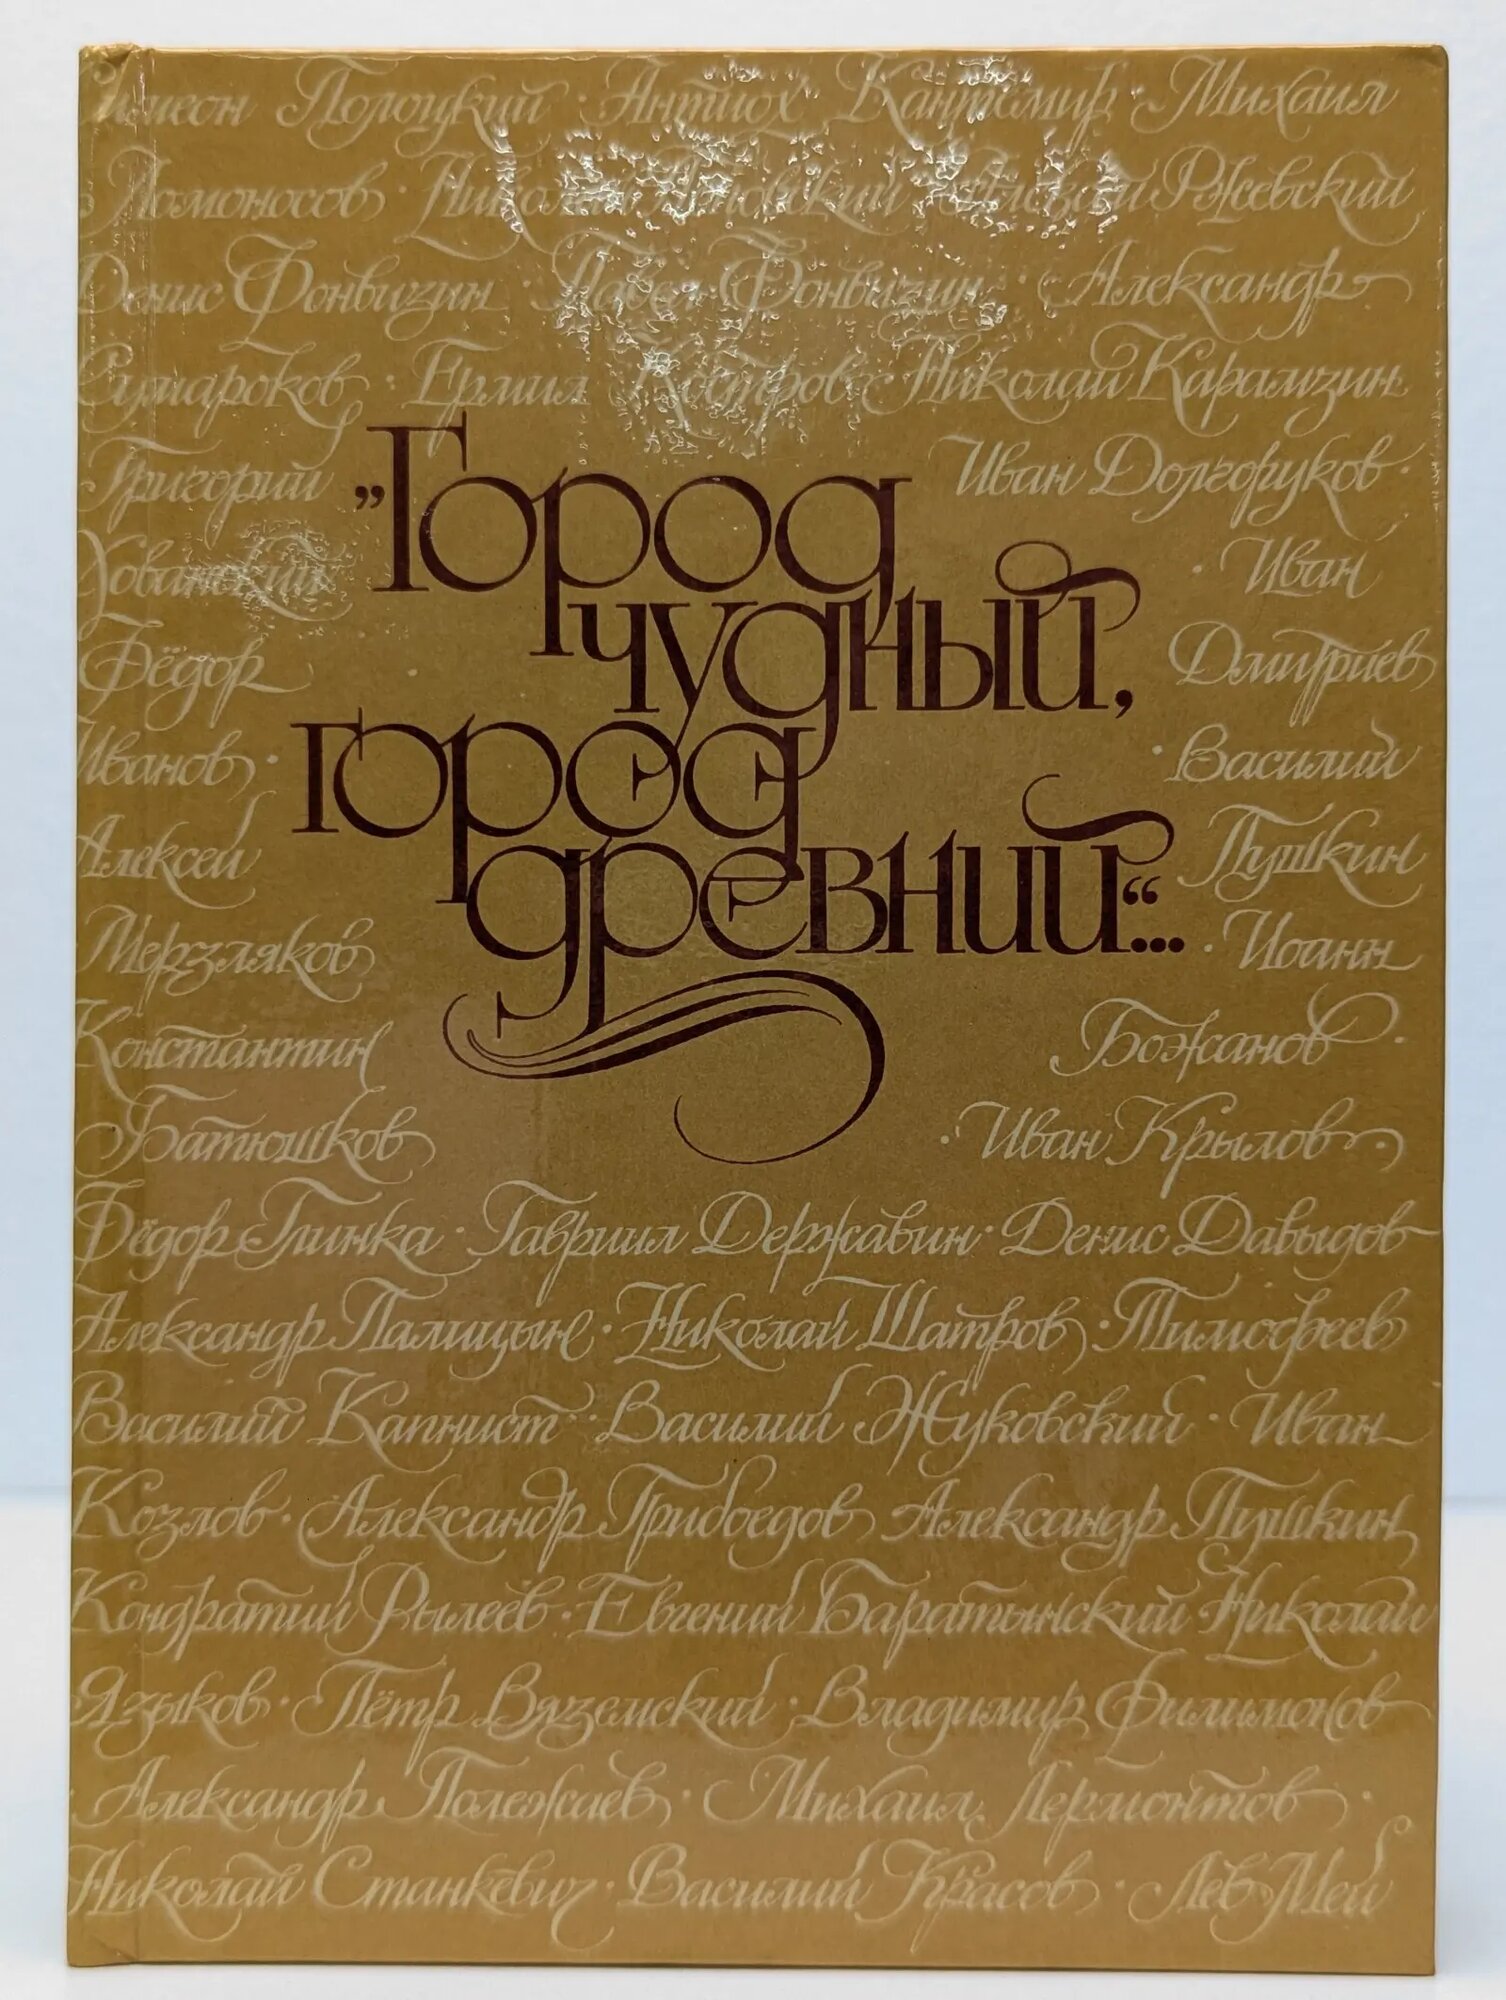 Симеон Полоцкий · Антиох Кантемир · Михаил
Ломоносов · Николай Поповский · Алексей Ржевский
Денис Фонвизин · Павел Фонвизин · Александр
Сумароков · Ермил Костров · Николай Карамзин
Григорий Иван Долгоруков ·
Хованский · Иван
Фёдор Дмитриев
Иванов · · Василий
Алексей Пушкин
Мерзляков · Иоанн
Константин Божанов ·
Батюшков · Иван Крылов ·
„Город
чудный,
город
древний“...
Фёдор Глинка · Гавриил Державин · Денис Давыдов
Александр Палицын · Николай Шатров · Тимофеев
Василий Капнист · Василий Жуковский · Иван
Козлов · Александр Грибоедов · Александр Пушкин
Кондратий Рылеев · Евгений Баратынский · Николай
Языков · Пётр Вяземский · Владимир Филимонов
· Александр Полежаев · Михаил Лермонтов ·
Николай Станкевич · Василий Красов · Лев Мей